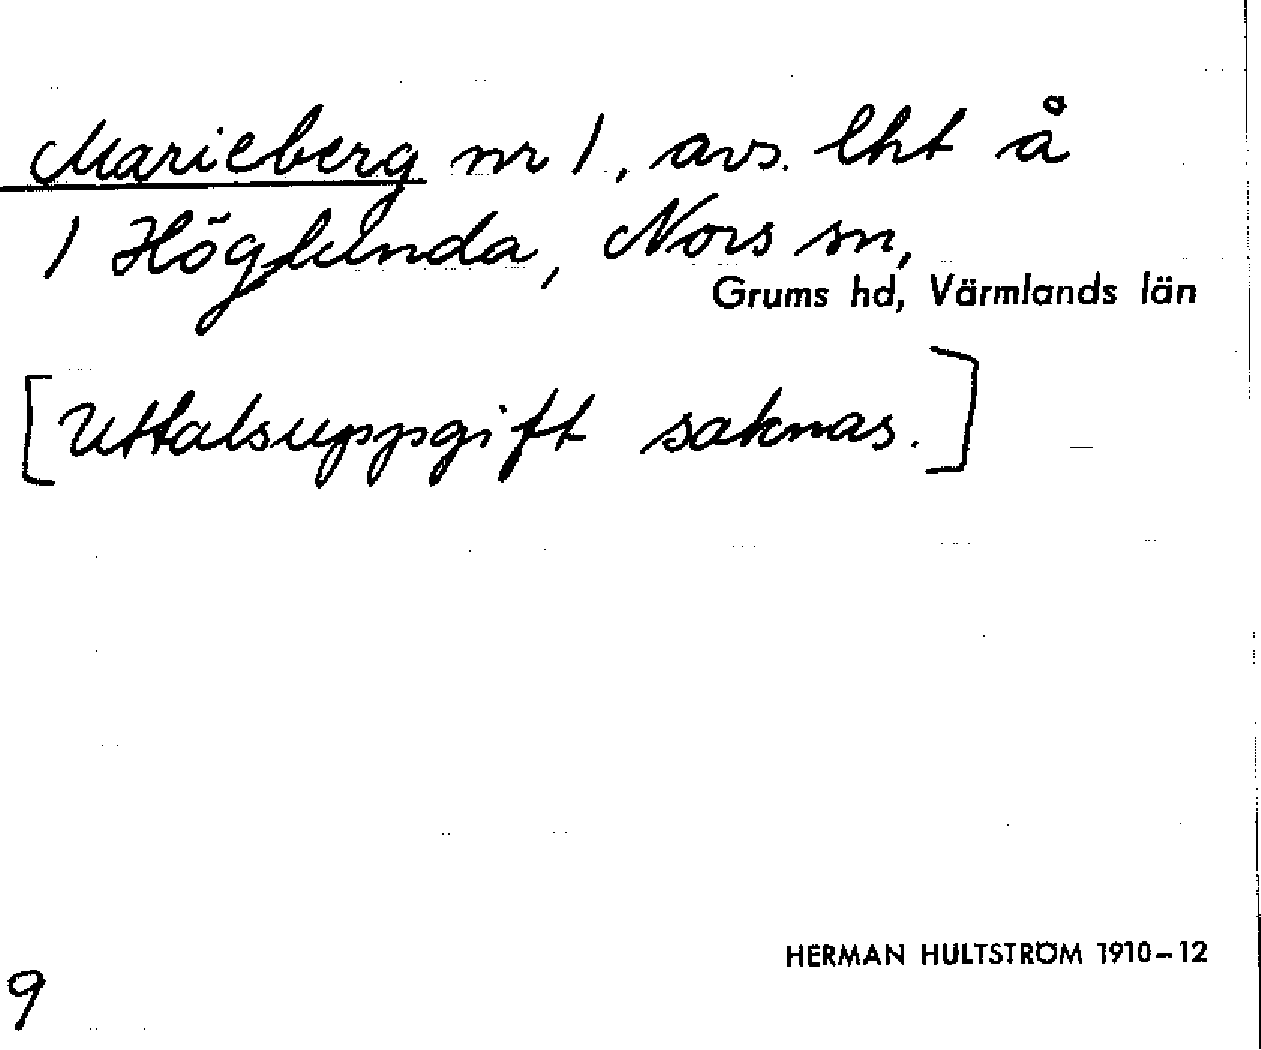 Marieberg nr 1, avs. lht å
1 Höglunda, Nors sn,
Grums hd, Värmlands län
[Uttalsuppgift saknas.]
HERMAN HULTSTRÖM 1910–12
9